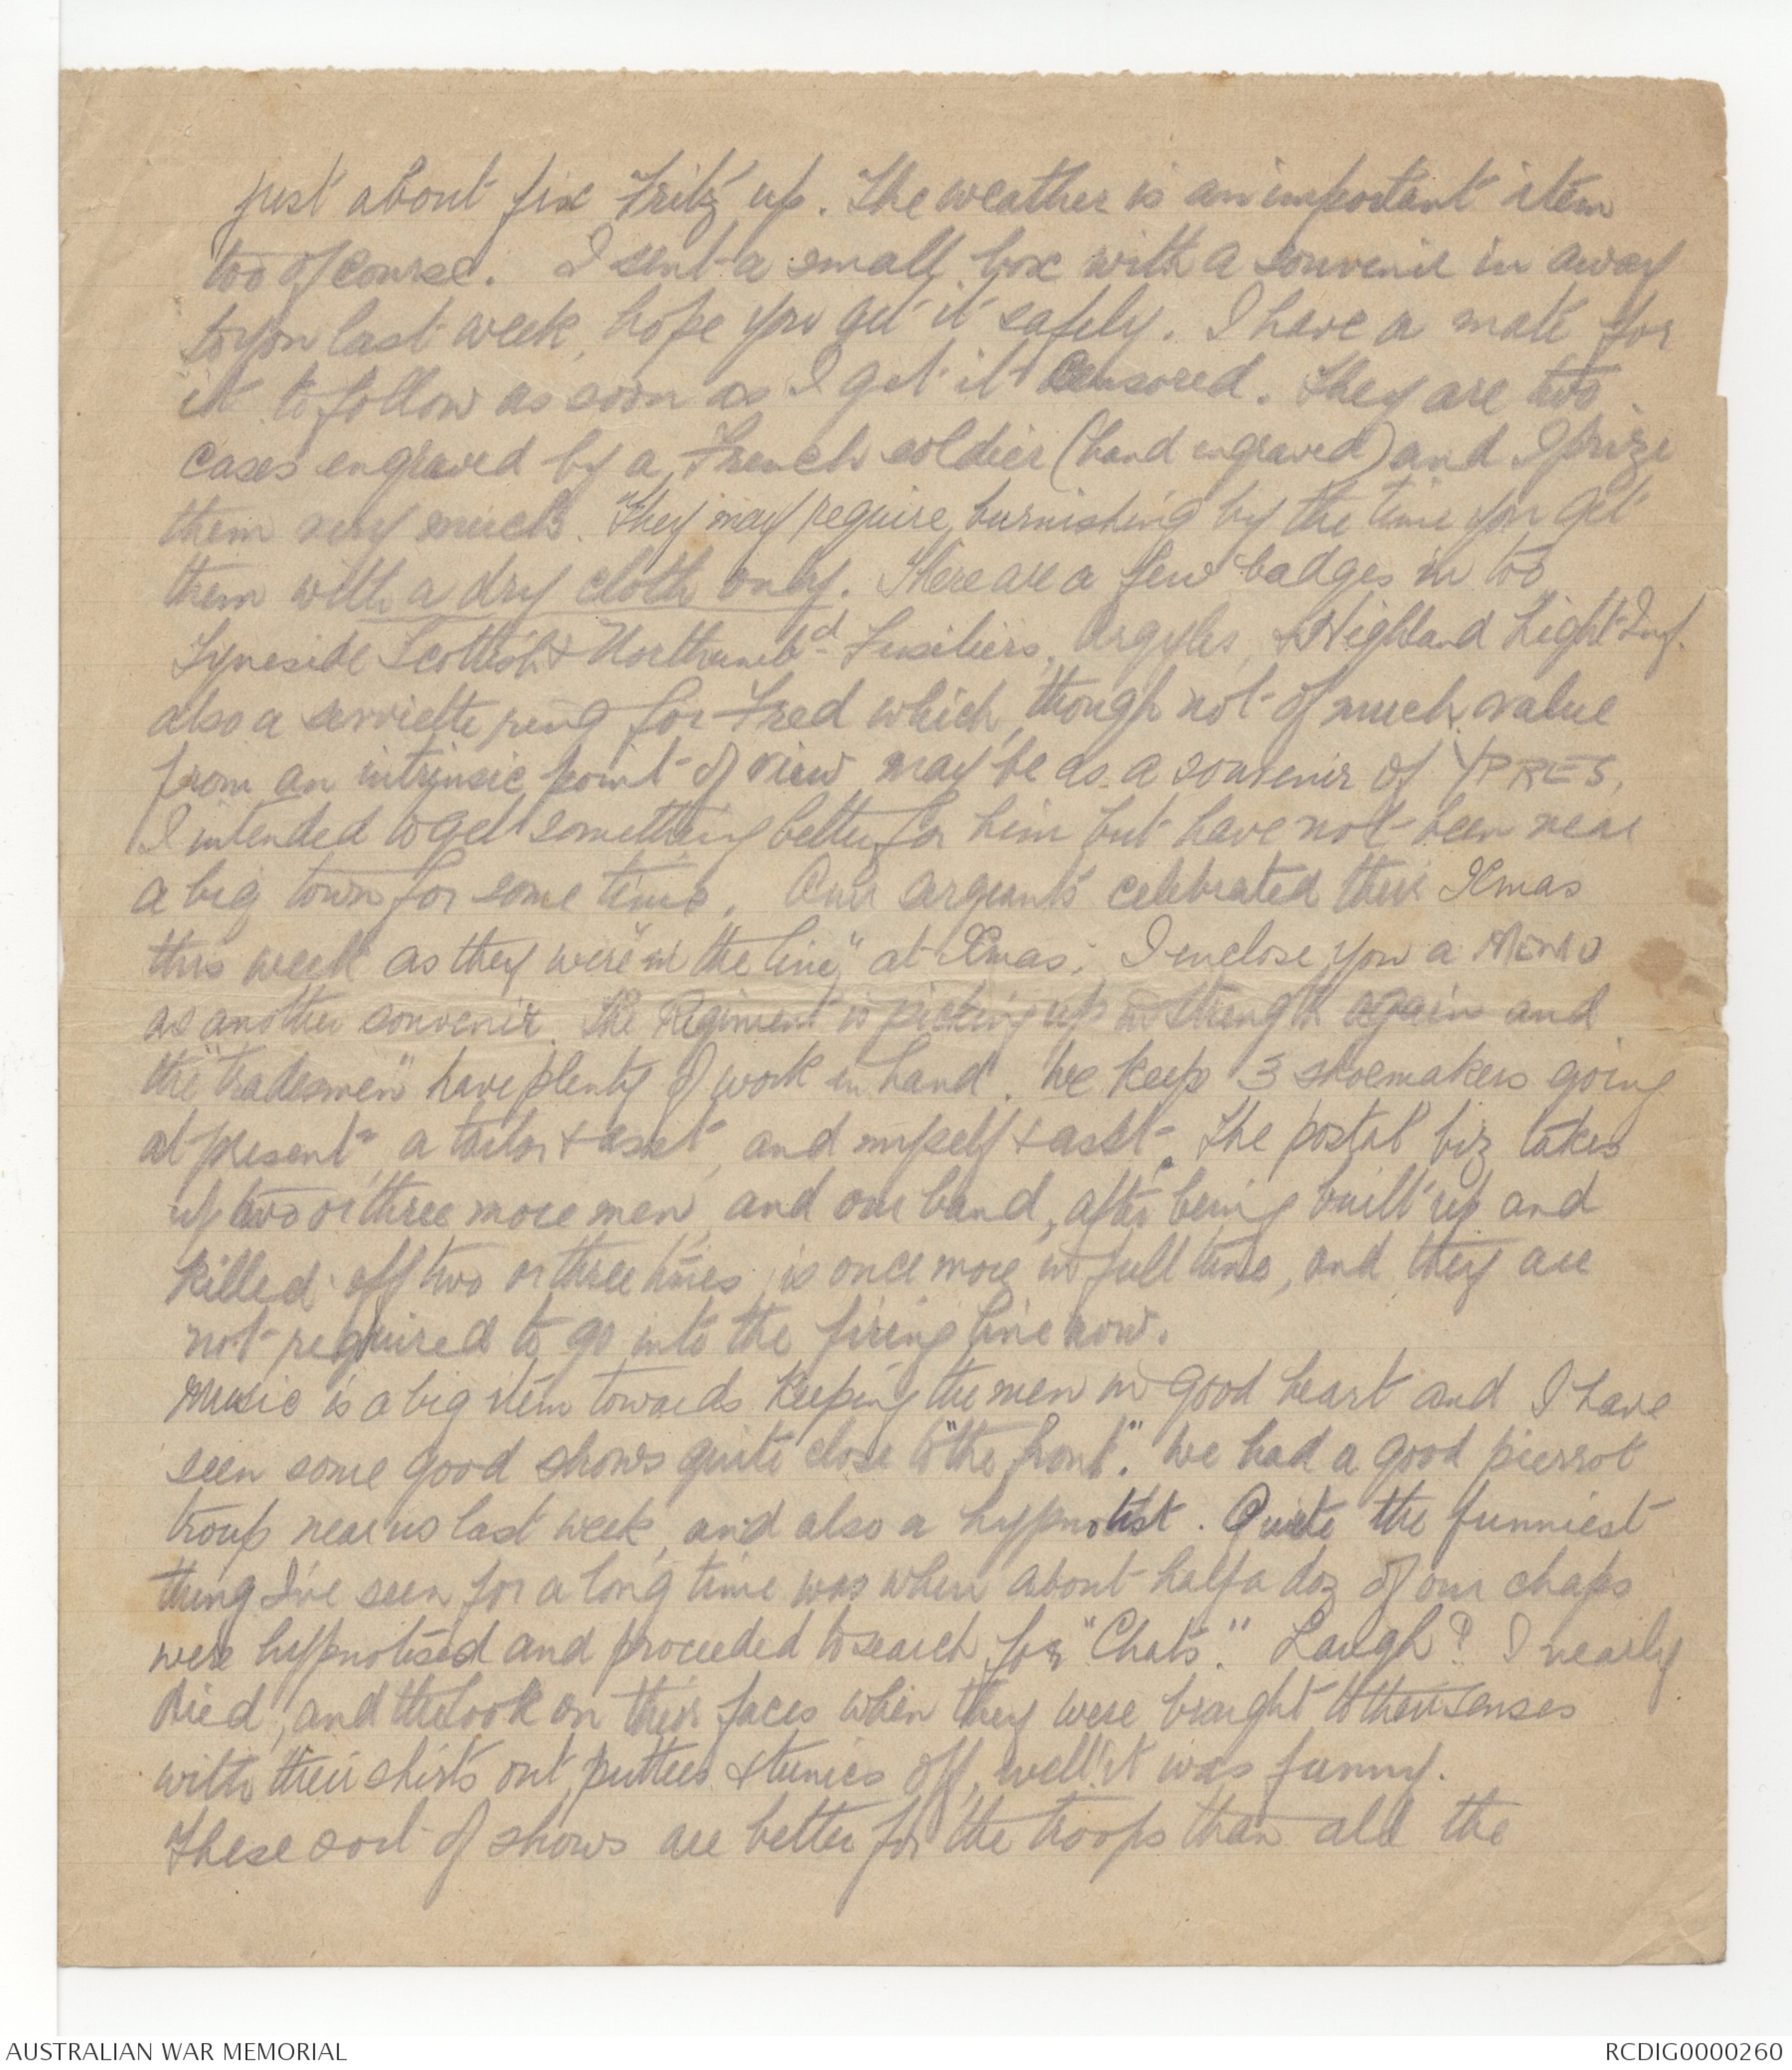 just about fix Fritz up. The weather is an important item
too of course. I sent a small box with a souvenir in away
to you last week, hope you get it safely. I have a mate for
it to follow as soon as I get it censored. They are two
cases engraved by a French soldier (hand engraved) and I prize
them very much. They may require burnishing by the time you get
them with a dry cloth only. There are a few badges in too
Tyneside Scottish & Northumbd Fusiliers, Argyles, Highland Light Inf.
also a serviette ring for Fred which, though not of much value
from an intrinsic point of view may be as a souvenir of YPRES.
I intended to get something better for him but have not been near
a big town for some time. Our sergeants celebrated their Xmas
this week as they were "in the line," at Xmas. I enclose you a Menu
as another souvenir. The Regiment is picking up in strength again and
the "tradesmen" have plenty of work in hand. We keep 3 shoemakers going
at present, a tailor & asst, and myself & asst. The postal biz takes
up two or three more men, and our band, after being built up and
killed off two or three times, is once more in full tune, and they are
not required to go into the firing line now.
Music is a big item towards keeping the men in good heart and I have
seen some good shows quite close to "the front". We had a good pierrot
troup near us last week, and also a hypnotist. Quite the funniest
thing I've seen for a long time was when about half a doz of our chaps
were hypnotised and proceeded to search for "Chats". Laugh? I nearly
died, and the look on their faces when they were braught to their senses
with their shirts out, puttees & tunics off, well! it was funny.
These sort of shows are better for the troops than all the
AUSTRALIAN WAR MEMORIAL
RCDIG0000260